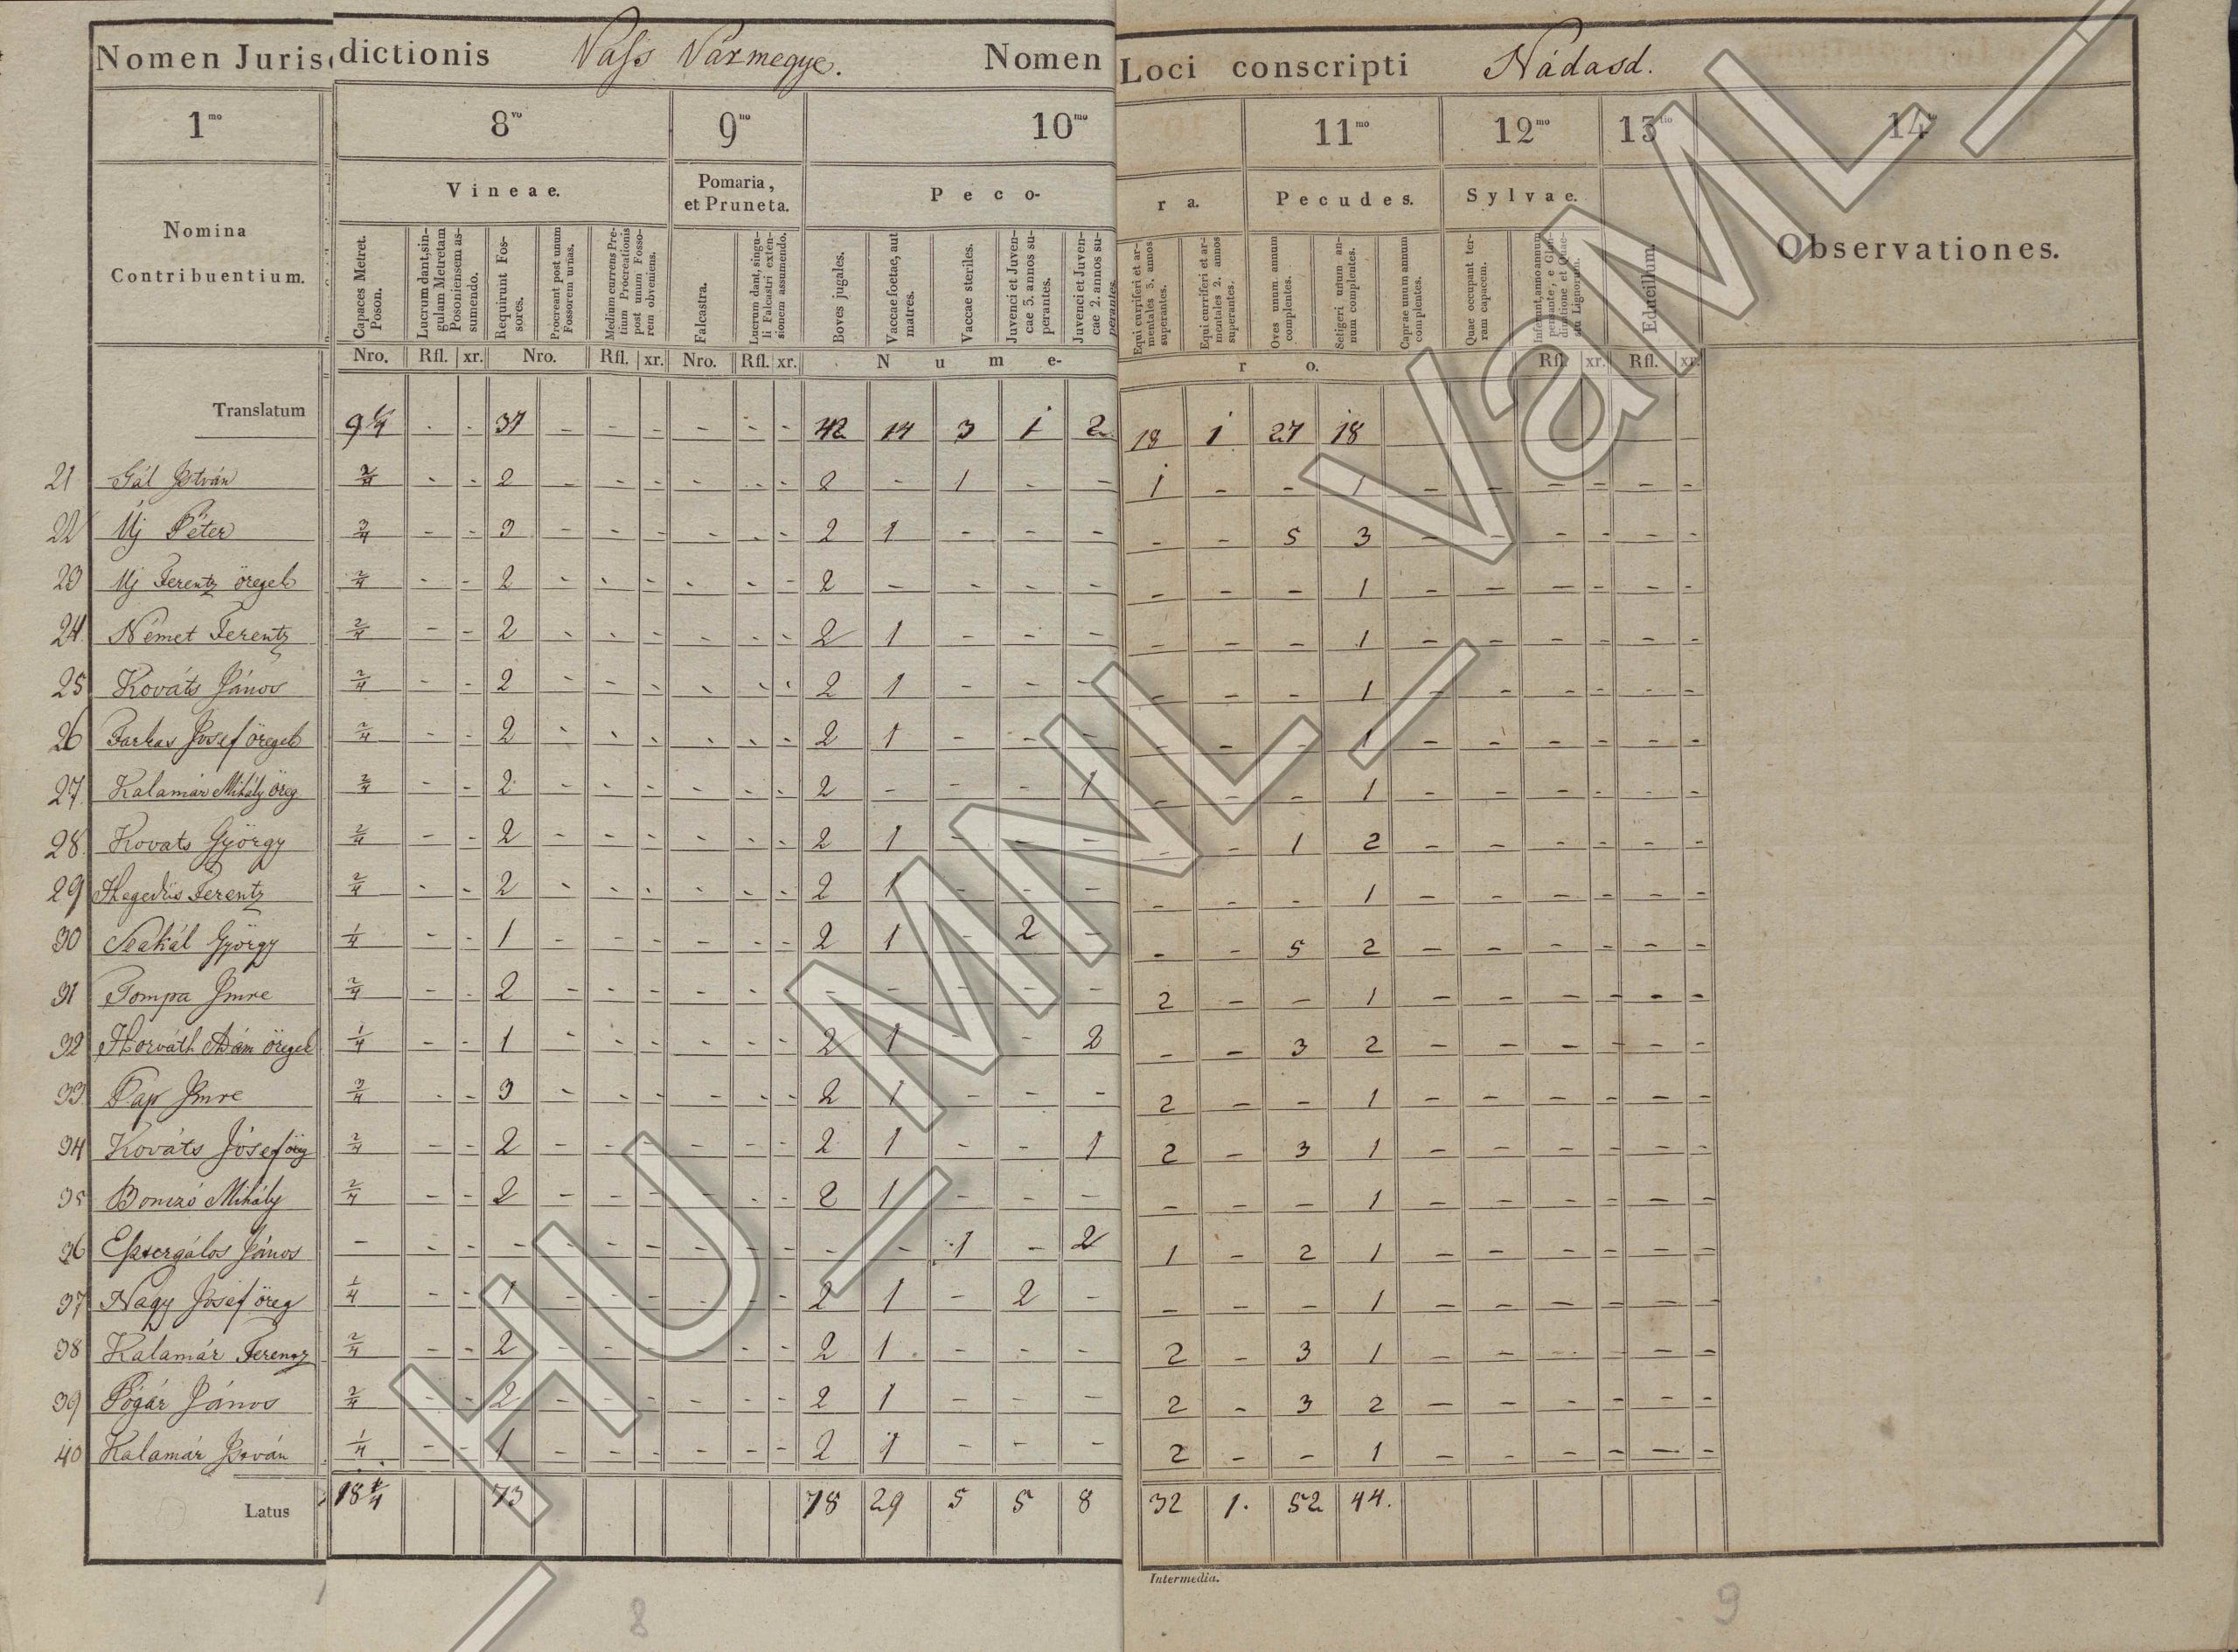 Nomen Jurisdictionis Vass Vármegye. Nomen Loci conscripti Nádasd.
1mo 8vo 9no 10mo 11mo 12mo 13tio 14to
Nomina Contribuentium. Vineae. Pomaria, et Pruneta. Peco- ra. Pecudes. Sylvae. Educillum. Observationes.
Capaces Metret. Poson.
Lucrum dant, singulam Metretam Posoniensem assumendo.
Requirunt Fossores.
Procreant post unum Fossorem urnas.
Medium currens Pretium Procreationis post unum Fossorem obveniens.
Falcastra.
Lucrum dant, singuli Falcastri extensionem assumendo.
Boves jugales.
Vaccae foetae, aut matres.
Vaccae steriles.
Juvenci et Juvencae 3. annos superantes.
Juvenci et Juvencae 2. annos superantes.
Equi curriferi et armentales 3. annos superantes.
Equi curriferi et armentales 2. annos superantes.
Oves unum annum complentes.
Setigeri unum annum complentes.
Caprae unum annum complentes.
Quae occupant terram capacem.
Nro. Rfl. xr. Nro. Rfl. xr. Nro. Rfl. xr. N u m e- r o. Rfl. xr. Rfl. xr.
Translatum 9 1/4 - - 37 - - - - - - 42 14 3 1 2 18 1 27 18
21 Gál István 2/4 - - 2 - - - - - - 2 - 1 - - 1 - - 1 - - - - - -
22 Uj Péter 3/4 - - 3 - - - - - - 2 1 - - - - - 5 3 - - - - - -
23 Uj Ferentz öregeb 2/4 - - 2 - - - - - - 2 - - - - - - - 1 - - - - - -
24. Német Ferentz 2/4 - - 2 - - - - - - 2 1 - - - - - - 1 - - - - - -
25 Kováts János 2/4 - - 2 - - - - - - 2 1 - - - - - - 1 - - - - - -
26 Farkas Josef öregeb 2/4 - - 2 - - - - - - 2 1 - - - - - - 1 - - - - - -
27. Kalamár Mihály öreg 2/4 - - 2 - - - - - - 2 - - - 1 - - - 1 - - - - - -
28. Kovats György 2/4 - - 2 - - - - - - 2 1 - - - - - 1 2 - - - - - -
29 Hegedüs Ferentz 2/4 - - 2 - - - - - - 2 1 - - - - - - 1 - - - - - -
30 Szakál György 1/4 - - 1 - - - - - - 2 1 - 2 - - - 5 2 - - - - - -
31 Tompa Imre 2/4 - - 2 - - - - - - - - - - - 2 - - 1 - - - - - -
32 Horváth Adám öregeb 1/4 - - 1 - - - - - - 2 1 - - 2 - - 3 2 - - - - - -
33. Pap Imre 3/4 - - 3 - - - - - - 2 1 - - - 2 - - 1 - - - - - -
34 Kováts Jósef öreg 2/4 - - 2 - - - - - - 2 1 - - 1 2 - 3 1 - - - - - -
35 Bonczó Mihály 2/4 - - 2 - - - - - - 2 1 - - - - - - 1 - - - - - -
36 Esztergálos János - - - - - - - - - - - - 1 - 2 1 - 2 1 - - - - - -
37 Nagy Josef öreg 1/4 - - 1 - - - - - - 2 1 - 2 - - - - 1 - - - - - -
38 Kalamár Ferencz 2/4 - - 2 - - - - - - 2 1 - - - 2 - 3 1 - - - - - -
39 Pógár János 2/4 - - 2 - - - - - - 2 1 - - - 2 - 3 2 - - - - - -
40 Kalamár István 1/4 - - 1 - - - - - - 2 1 - - - 2 - - 1 - - - - - -
Latus 18 1/4 73 78 29 5 5 8 32 1. 52 44.
Intermedia.
8 9
HU - MNL - VaML -